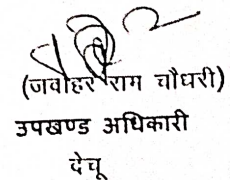 (जवाहर राम चौधरी)
उपखण्ड अधिकारी
देचू